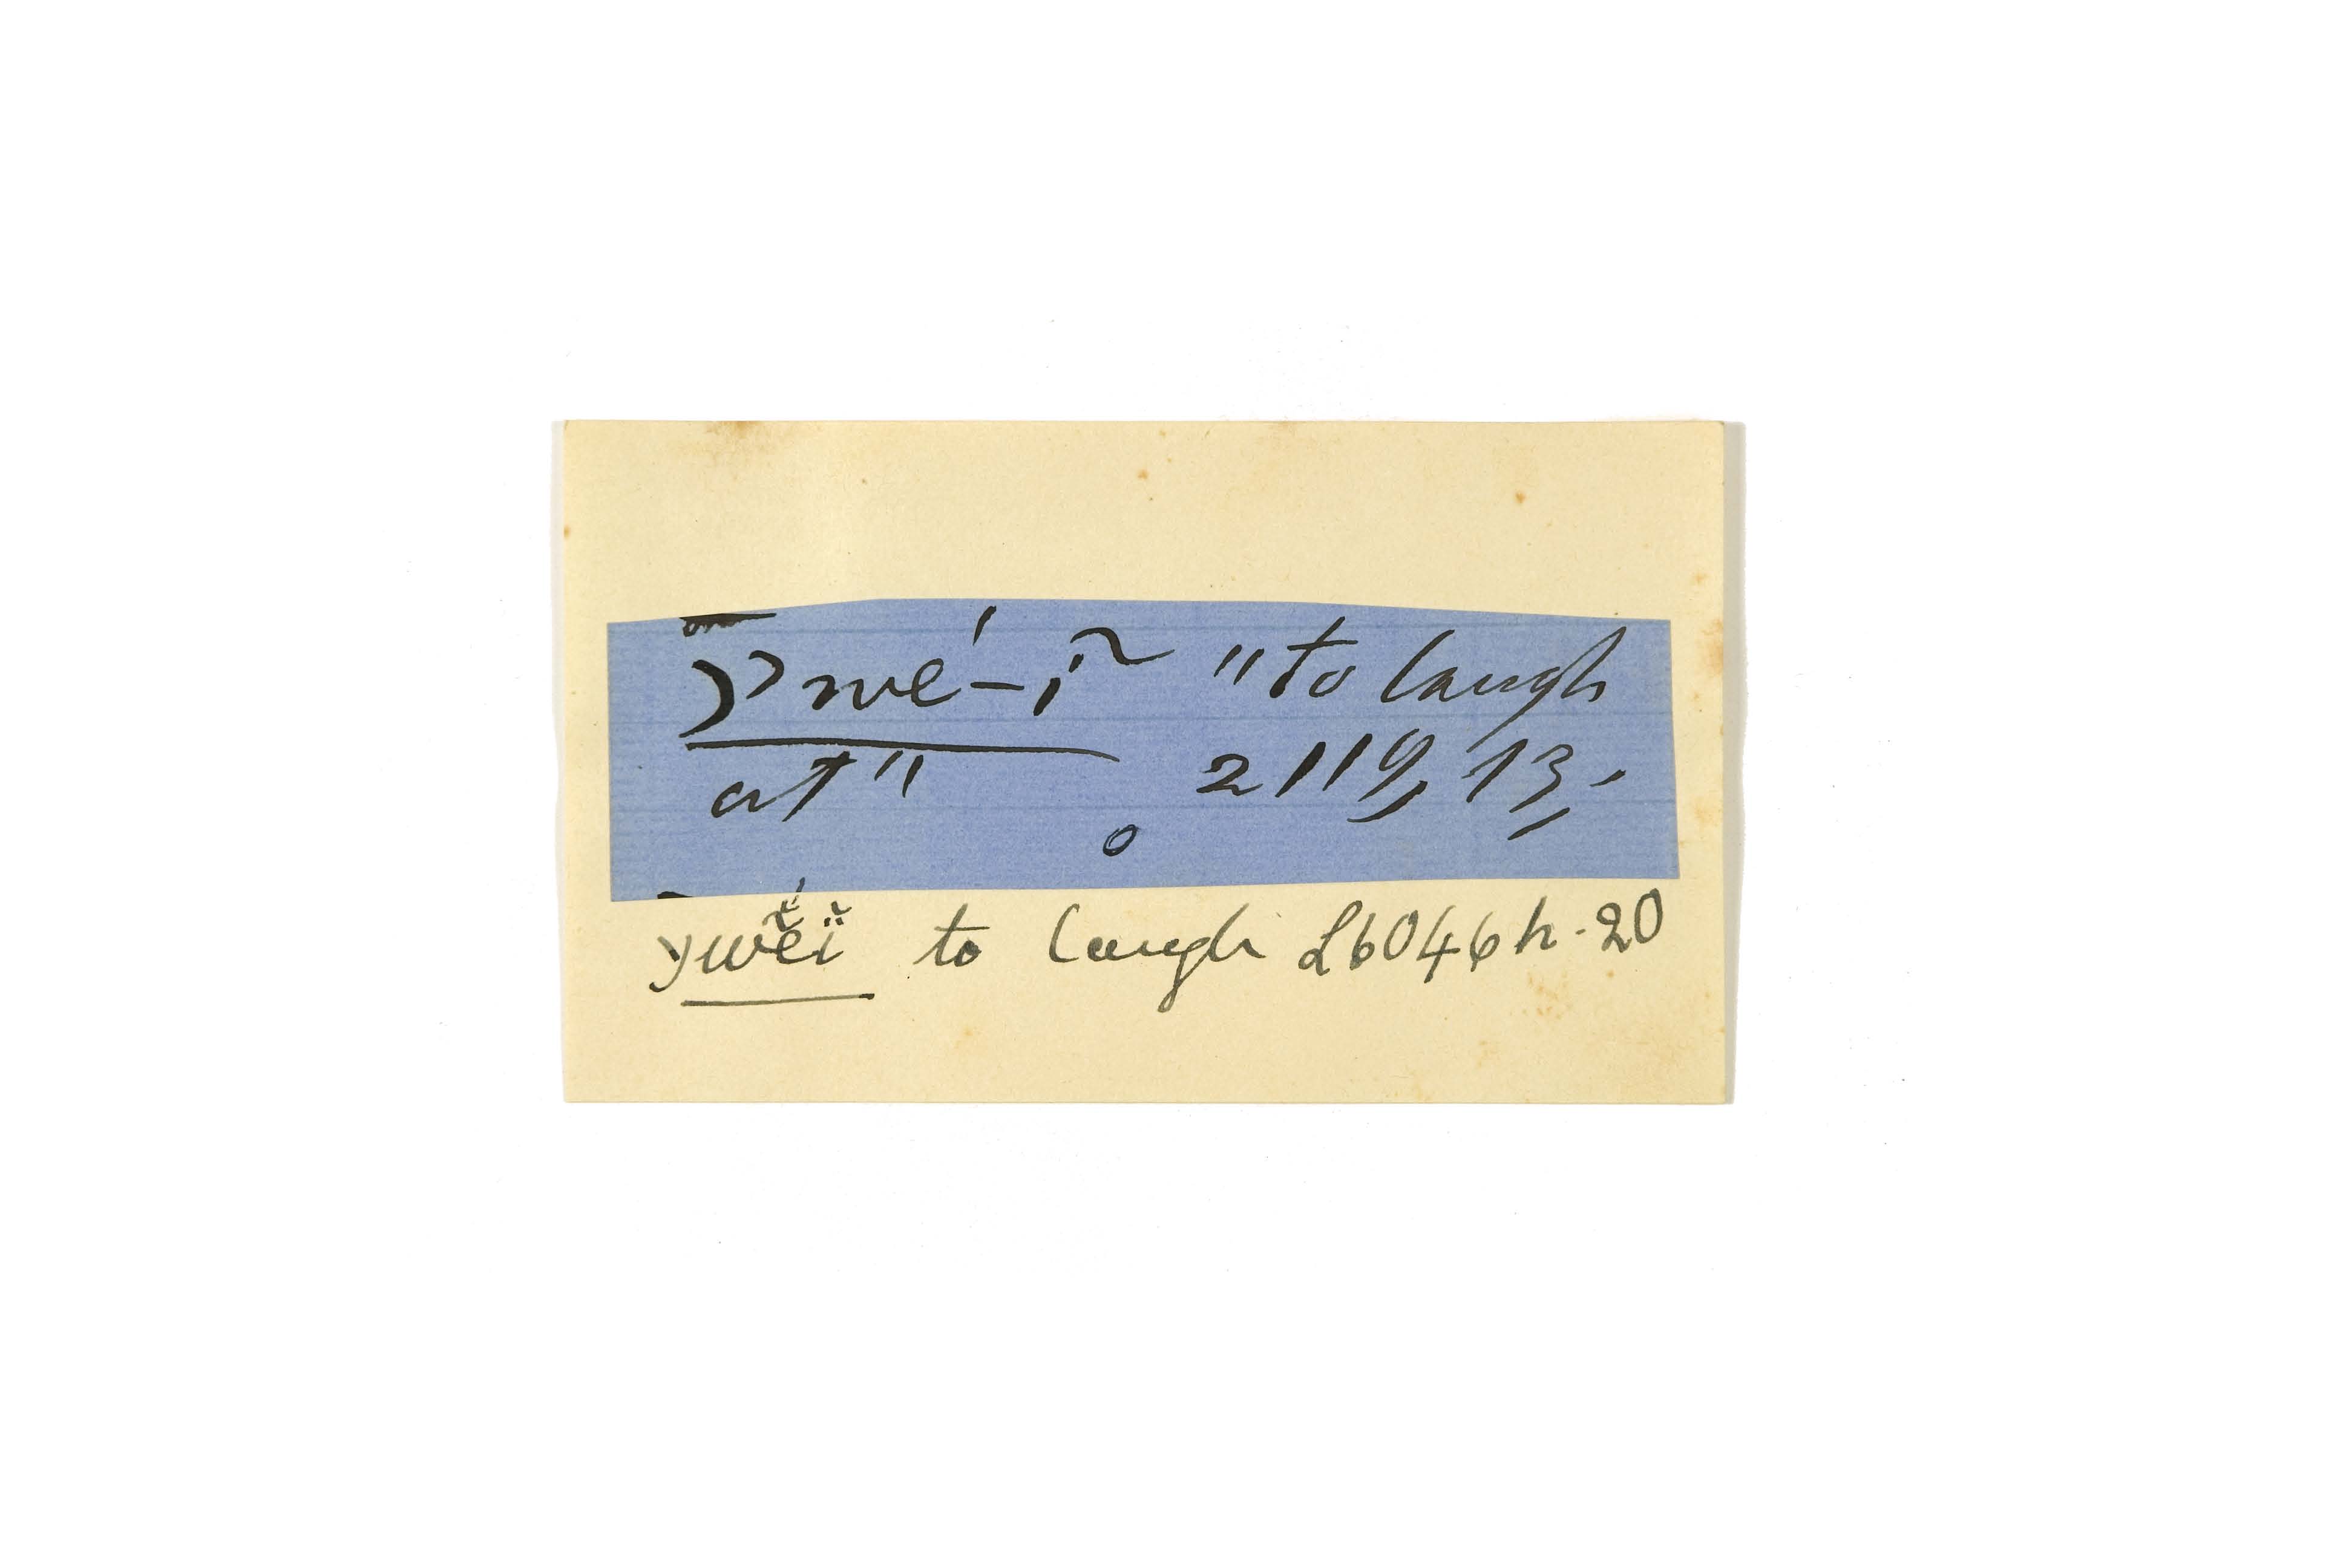 ywé-ĩ "to laugh
at" 2119, 13,
ywẽ́ĩ̈ to laugh L6046h-20